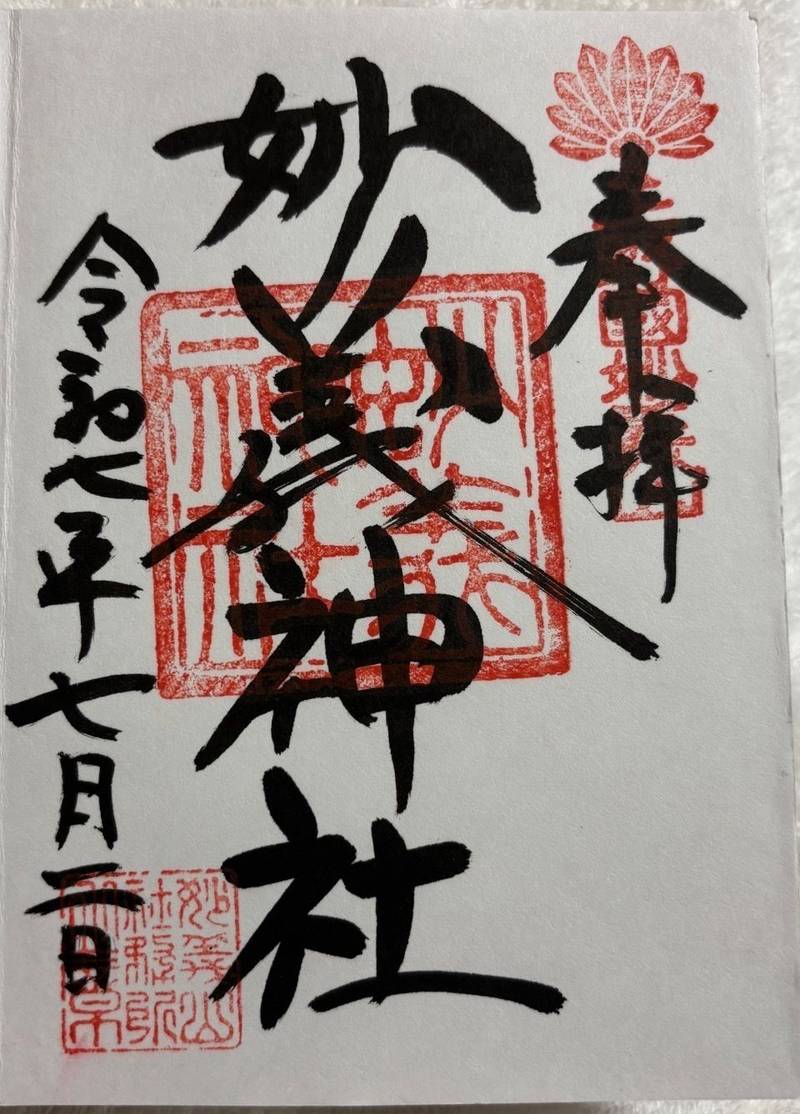 奉拝
妙義神社
妙義
神社
令和七年七月二日
妙義山
社務所